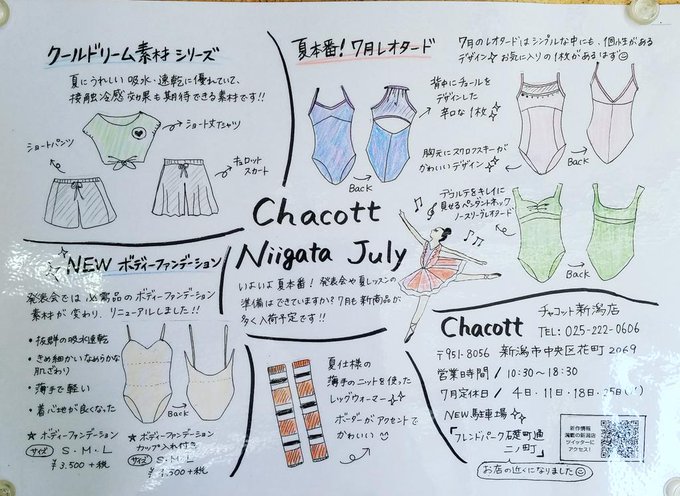 クールドリーム素材シリーズ
夏にうれしい吸水・速乾に優れていて、
接触冷感効果も期待できる素材です!!
ショート丈Tシャツ
ショートパンツ
キュロット
スカート
夏本番!7月レオタード
7月のレオタードはシンプルな中にも、個性がある
デザイン♪お気に入りの1枚があるはず
背中にチュールを
デザインした
辛口な1枚
Back
胸元にスワロフスキーが
かわいいデザイン
Back
デコルテをキレイに
見せるペンダントネック
ノースリーブレオタード
Back
Chacott
Niigata July
いよいよ夏本番!発表会や夏レッスンの
準備はできていますか?7月も新商品が
多く入荷予定です!!
NEW ボディーファンデーション
発表会では必需品のボディーファンデーション
素材が変わり、リニューアルしました!!
・抜群の吸水速乾
・きめ細かいなめらかな
肌ざわり
・薄手で軽い
・着心地が良くなった
Back
★ボディーファンデーション
サイズ S・M・L
¥3,500+税
★ボディーファンデーション
カップ入れ付き
サイズ S・M・L
¥4,500+税
夏仕様の
薄手のニットを使った
レッグウォーマー
ボーダーがアクセントで
かわいい
Chacott チャコット新潟店
TEL:025-222-0606
〒951-8056 新潟市中央区花町2069
営業時間/10:30~18:30
7月定休日/4日・11日・18日・25日
NEW駐車場
「フレンドパーク礎町通
二ノ町」
お店の近くになりました
新作情報
満載の新潟店
ツイッターに
アクセス!